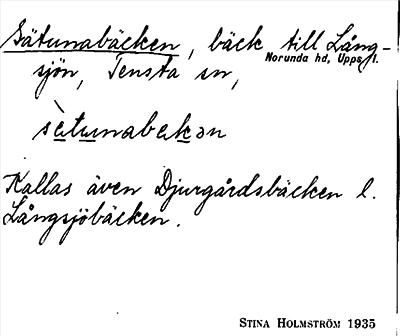 Sätunabäcken, bäck till Lång-
Norunda hd, Upps. l.
sjön, Tensta sn,
sètunabekən
Kallas även Djurgårdsbäcken l.
Långsjöbäcken.
STINA HOLMSTRÖM 1935